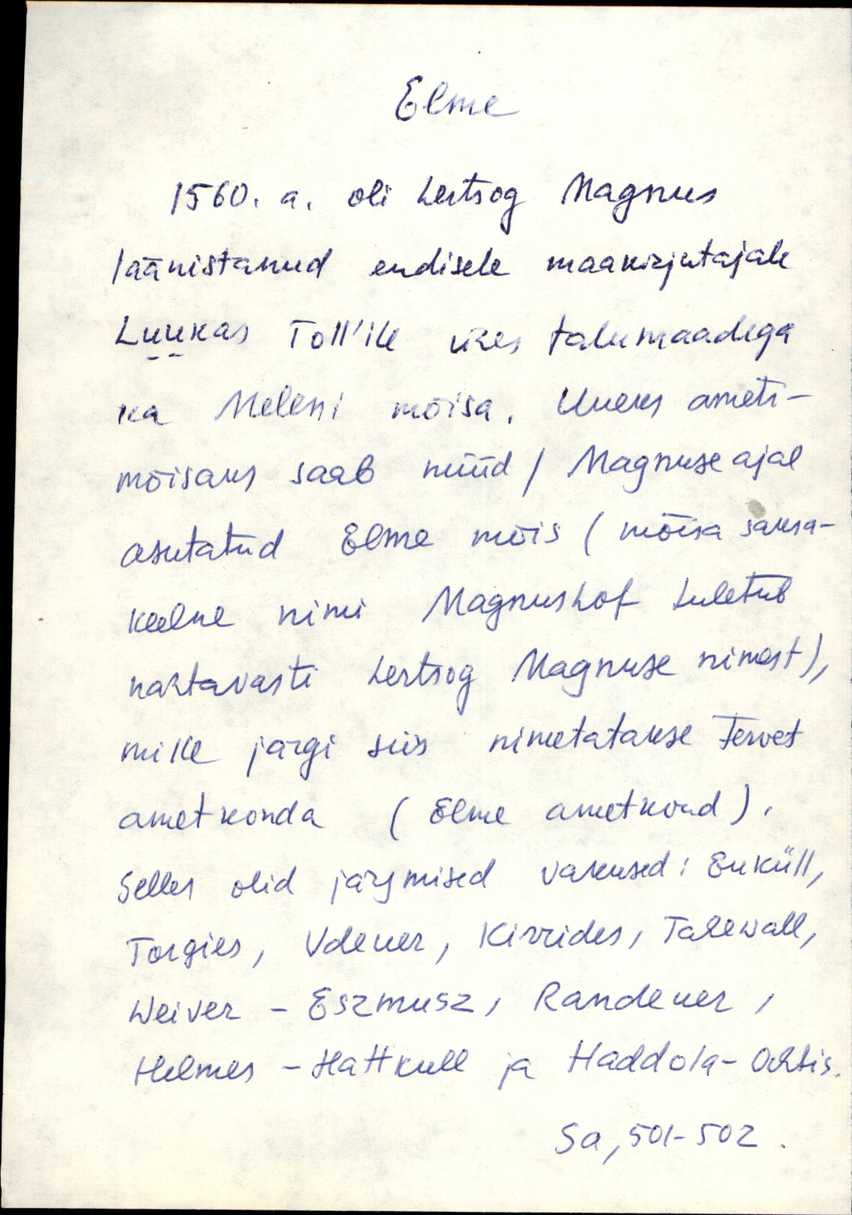 Elme
1560. a. oli hertsog Magnus
läänistanud endisele maakirjutajale
Luukas Toll'ile ühes talumaadega
ka Melesi mõisa. Uueks ameti-
mõisaks saab nüüd / Magnuse ajal
asutatud Elme mõis ( mõisa saksa-
keelne nimi Magnushof tuletub
nähtavasti hertsog Magnuse nimest),
mille järgi siis nimetatakse tervet
ametkonda ( Elme ametkond ).
Selles olid järgmised vakused: Enküll,
Torgies, Udeuer, Kirrides, Takewall,
Weiver - Eszmusz, Randeuer,
Helmes - Hattkull ja Haddola - Ochtis.
Sa, 501-502.